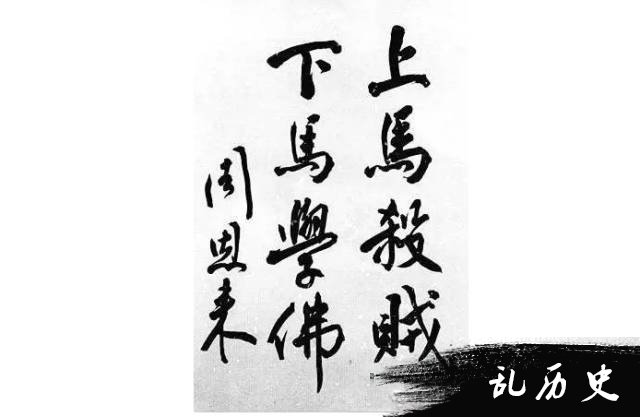 上馬殺賊
下馬學佛
周恩来
乱历史